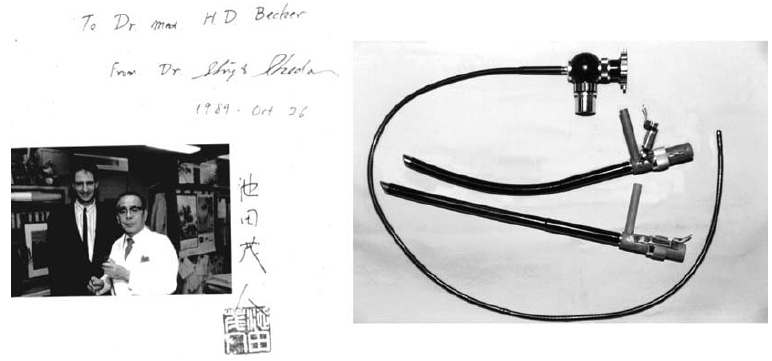 To Dr med H.D Becker
From Dr. Shigeto Ikeda
1984 - Oct 26
池田茂人